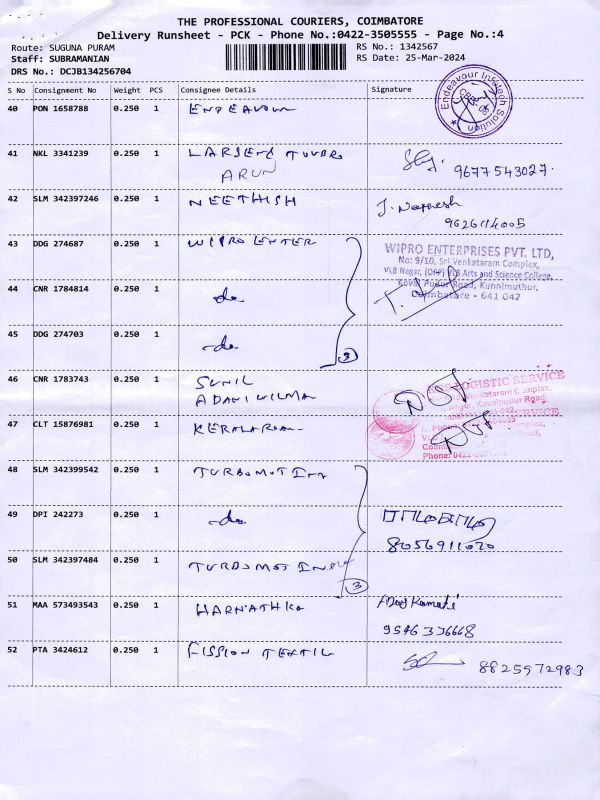 THE PROFESSIONAL COURIERS, COIMBATORE
Delivery Runsheet - PCK - Phone No.:0422-3505555 - Page No.:4
Route: SUGUNA PURAM RS No.: 1342567
Staff: SUBRAMANIAN RS Date: 25-Mar-2024
DRS No.: DCJB134256704
S No Consignment No Weight PCS Consignee Details Signature
Endeavour Infotech Solution
40 PON 1658788 0.250 1 ENDEAVOUR
41 NKL 3341239 0.250 1 LARSENG TURBRO
ARUN 9677543027.
42 SLM 342397246 0.250 1 NEETHISH J. Naresh
9626114005
43 DDG 274687 0.250 1 WIPRO ENTER
WIPRO ENTERPRISES PVT. LTD,
No: 9/10, Sri Venkataram Complex,
VLB Nagar, (OPP) VLB Arts and Science College,
Kovai Pudur Road, Kunnimuthur,
Coimbatore - 641 042
44 CNR 1784814 0.250 1 -do-
45 DDG 274703 0.250 1 -do-
3
46 CNR 1783743 0.250 1 SUNIL
ADANI WILMA
LOGISTIC SERVICE
47 CLT 15876981 0.250 1 KERALA
48 SLM 342399542 0.250 1 TURBOMOT IND
49 DPI 242273 0.250 1 -do-
8056911020
50 SLM 342397484 0.250 1 TURBOMOT
3
51 MAA 573493543 0.250 1 HARNATHKA
9546336668
52 PTA 3424612 0.250 1 FISSION TEXTIL 8825972983